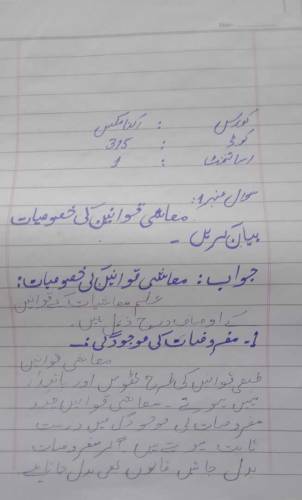 کورس : اکنامکس
کوڈ : 315
اسائنمنٹ : 1
سوال نمبر 1:
معاشی قوانین کی خصوصیات
بیان کریں۔
جواب: معاشی قوانین کی خصوصیات:
علم معاشیات کے قوانین
کے اوصاف درج ذیل ہیں۔
1- مفروضات کی موجودگی:-
معاشی قوانین
طبعی قوانین کی طرح ٹھوس اور
نہیں ہوتے۔ معاشی قوانین چند
مفروضات کی موجودگی میں درست
ثابت ہوتے ہیں اگر مفروضات
بدل جائیں قانون بھی بدل جاتا ہے